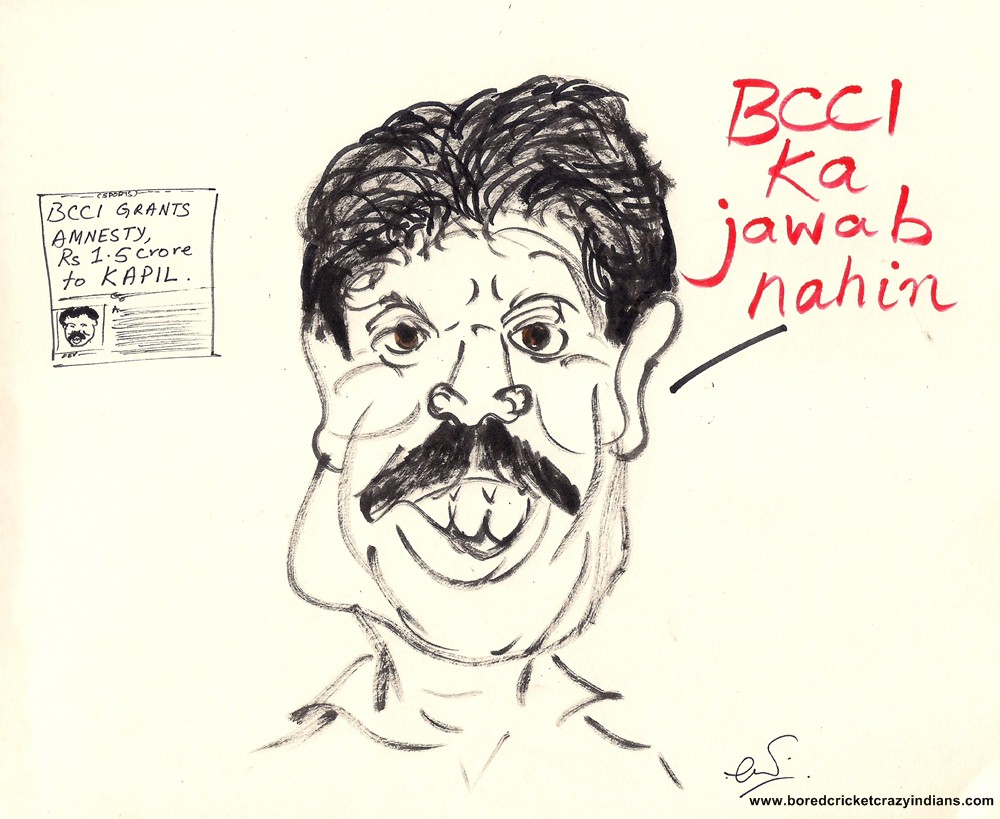 (SPORTS)
BCCI GRANTS
AMNESTY,
Rs 1.5 crore
to KAPIL.
DEV
BCCI
ka
jawab
nahin
www.boredcricketcrazyindians.com